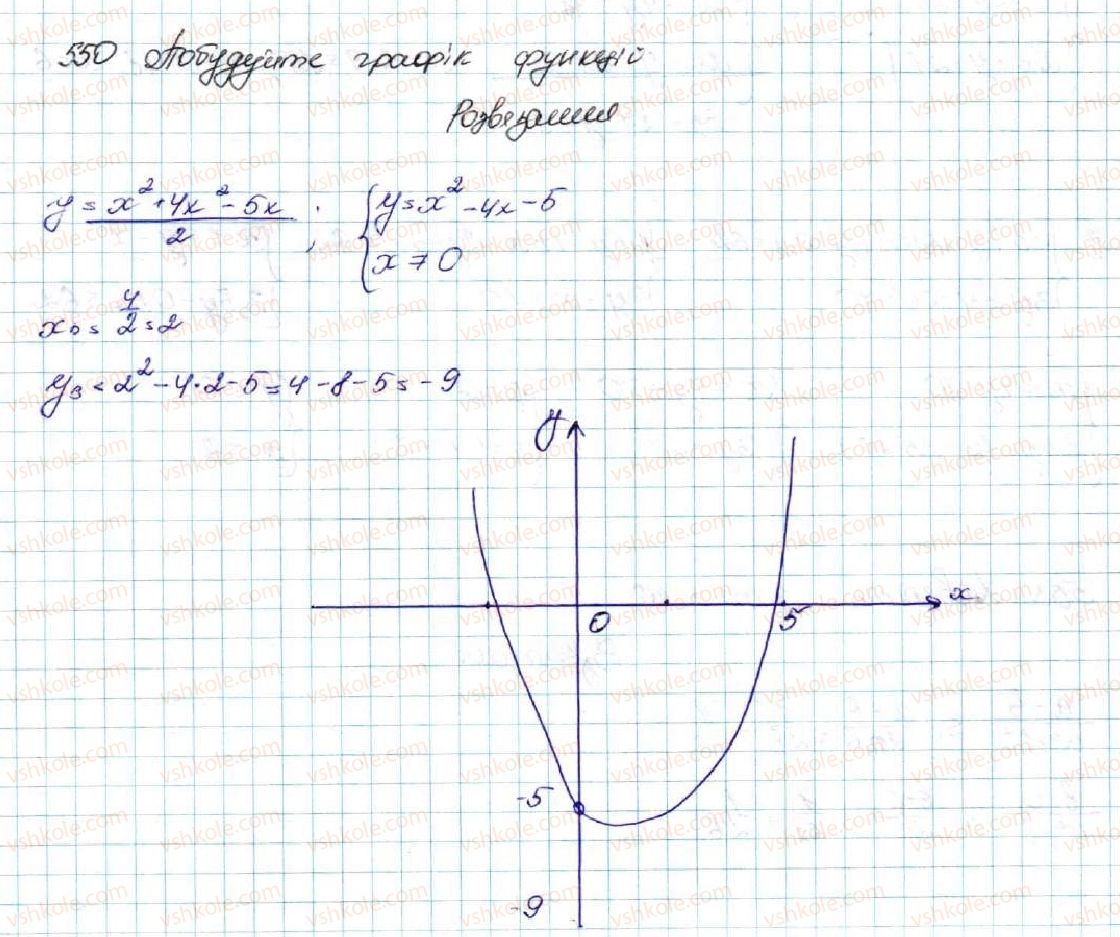 550 Побудуйте графік функцій
Розвязання
y = x² + 4x² - 5x / 2 ; { y = x² - 4x - 5
x ≠ 0
x₀ = 4/2 = 2
y₀ = 2² - 4·2 - 5 = 4 - 8 - 5 = -9
y
x
0
5
-5
-9